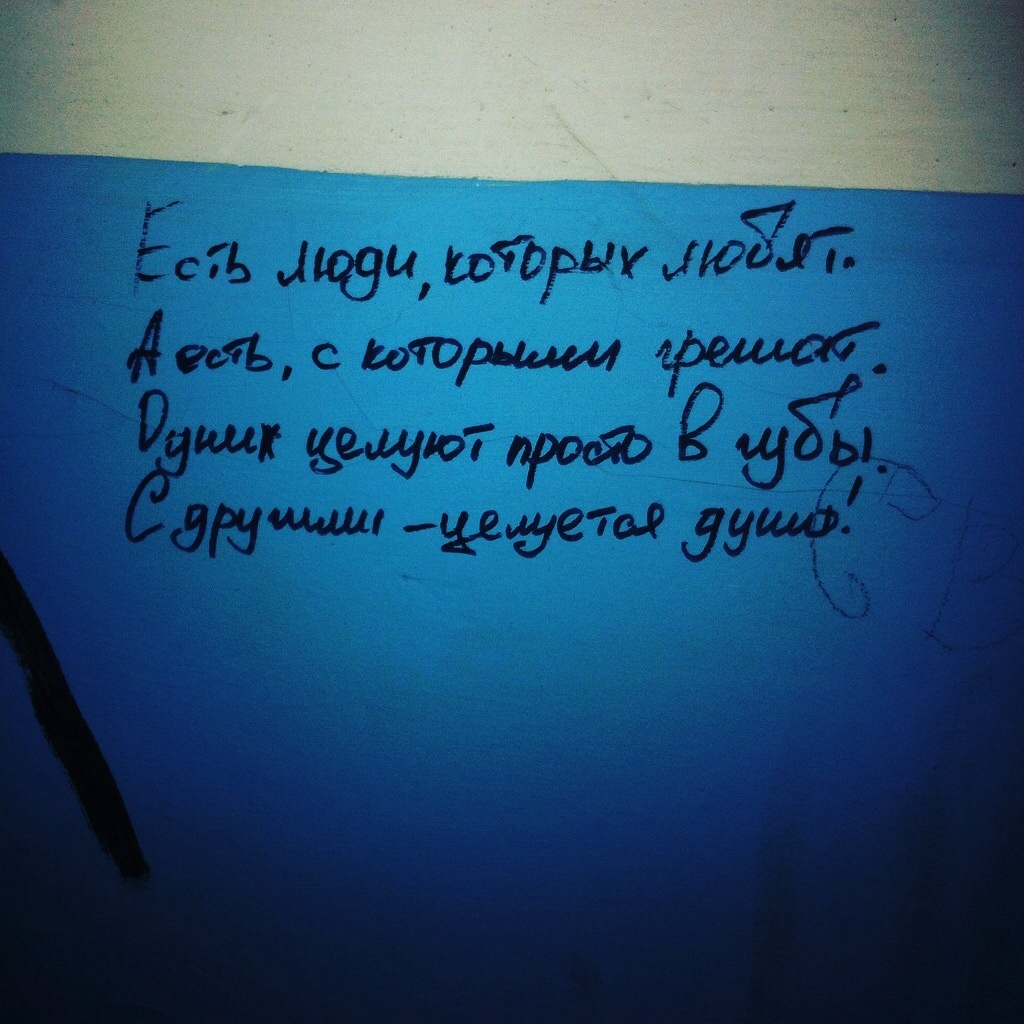 Есть люди, которых любят.
А есть, с которыми грешат.
Одних целуют просто в губы.
С другими - целуется душа!